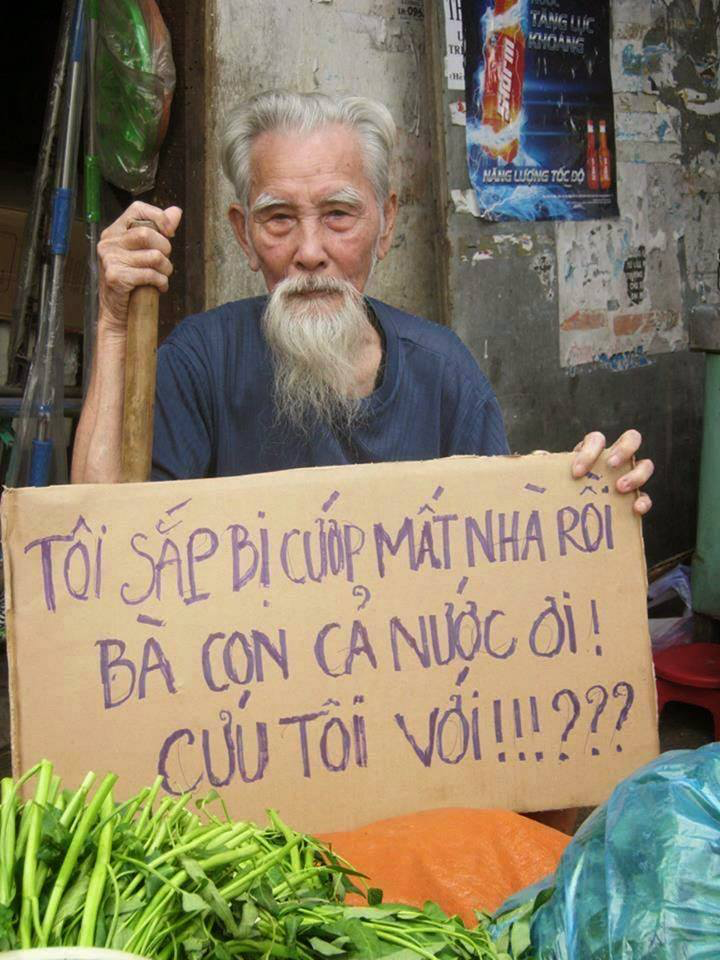 TĂNG LỰC
KHOÁNG
Storm
NĂNG LƯỢNG TỐC ĐỘ
TÔI SẮP BỊ CƯỚP MẤT NHÀ RỒI
BÀ CON CẢ NƯỚC ƠI!
CỨU TÔI VỚI!!!???